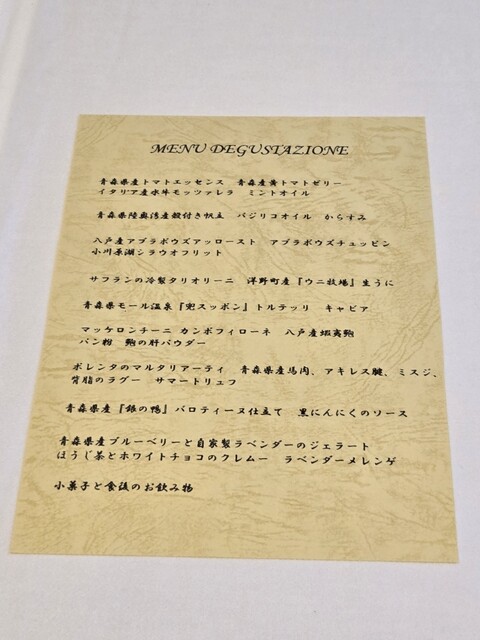 MENU DEGUSTAZIONE
青森県産トマトエッセンス　青森産黄トマトゼリー
イタリア産水牛モッツァレラ　ミントオイル
青森県陸奥湾産殻付き帆立　バジリコオイル　からすみ
八戸産アブラボウズアッロースト　アブラボウズチュッピン
小川原湖シラウオフリット
サフランの冷製タリオリーニ　洋野町産『ウニ牧場』生うに
青森県モール温泉『兜スッポン』トルテッリ　キャビア
マッケロンチーニ カンポフィローネ　八戸産蝦夷鮑
パン粉　鮑の肝パウダー
ポレンタのマルタリアーティ　青森県産馬肉、アキレス腱、ミスジ、
背脂のラグー　サマートリュフ
青森県産『銀の鴨』バロティーヌ仕立て　黒にんにくのソース
青森県産ブルーベリーと自家製ラベンダーのジェラート
ほうじ茶とホワイトチョコのクレムー　ラベンダーメレンゲ
小菓子と食後のお飲み物